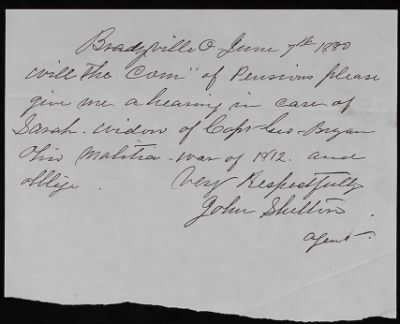 Bradyville O June 7th 1880
will the Com" of Pensions please
give me a hearing in case of
Sarah. widow of Capt Geo. Bryan
Ohio Malitia. war of 1812. and
oblige. Very Respectfully
John Shelton
agent.